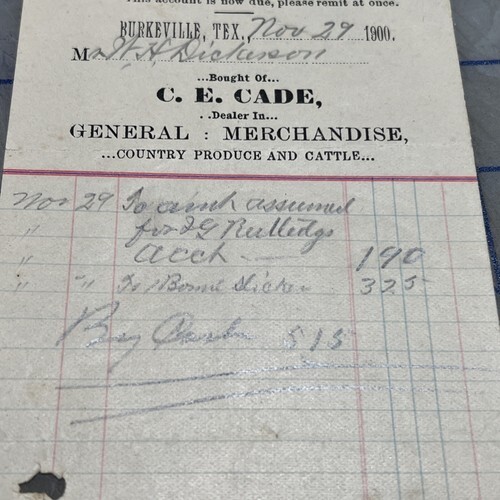 This account is now due, please remit at once.
BURKEVILLE, TEX., Nov 29 1900.
Mr W. H. Dickerson
...Bought of...
C. E. CADE,
..Dealer in...
GENERAL : MERCHANDISE,
...COUNTRY PRODUCE AND CATTLE...
Nov 29 To amt assumed
" for J G Rutledgs
" acct — 190
" " To 1 Slicker 325
By Cash 515